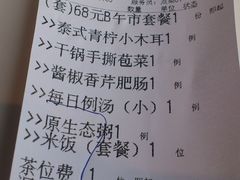 数量 单位 状态
(套)68元B午市套餐1 份 即起
>>泰式青柠小木耳1 例
>>干锅手撕苞菜1 例
>>酱椒香芹肥肠1 例
>>每日例汤（小）1 例
>>原生态粥1 例
>>米饭（套餐）1 位
茶位费 1